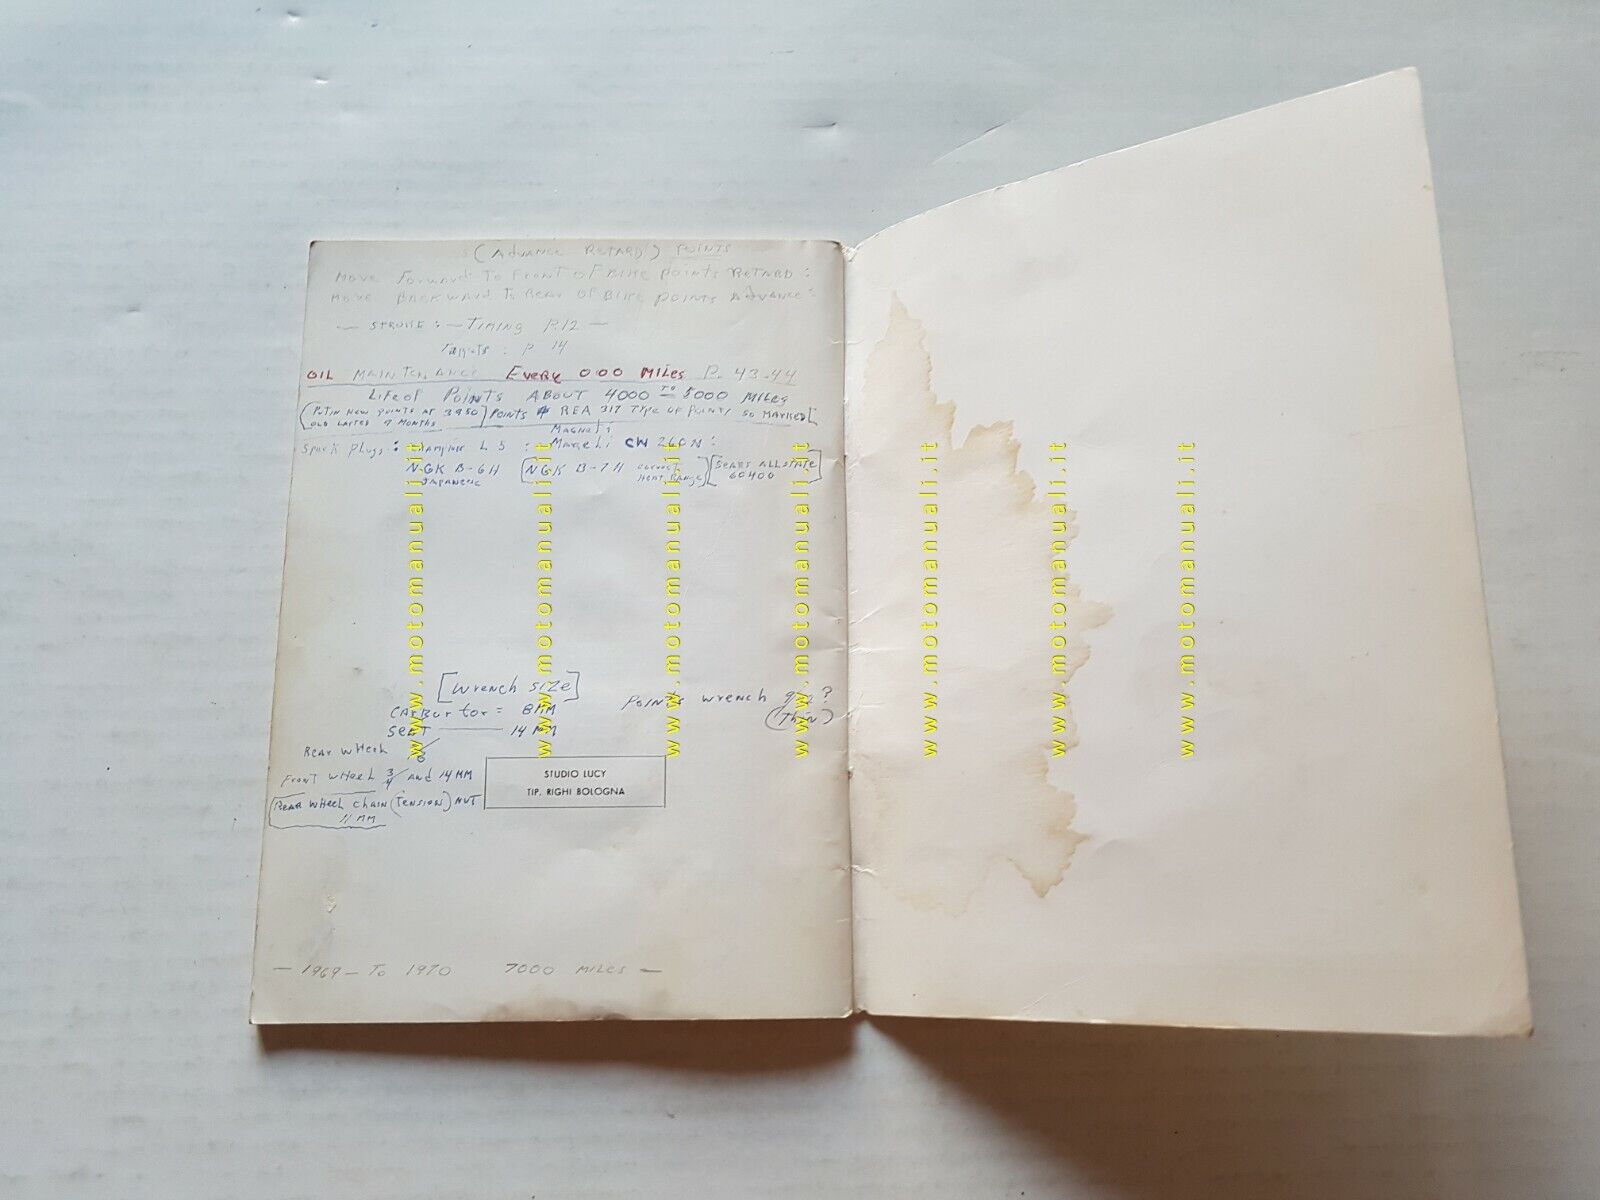 (ADVANCE RETARD) POINTS
MOVE FORWARD TO FRONT OF BIKE POINTS RETARD:
MOVE BACKWARD TO REAR OF BIKE POINTS ADVANCE:
— STROKE: — TIMING P.12 —
P 14
OIL MAINTENANCE EVERY 000 MILES P. 43-44
LIFE OF POINTS ABOUT 4000 TO 5000 MILES
(PUT IN NEW POINTS AT 3950) POINTS # REA 317 TYPE OF POINTS SO MARKED
OLD LASTED 9 MONTHS
Spark Plugs: CHAMPION L 5 : MAGNETI MARELLI CW 260N:
NGK B-6H [NGK B-7H CORRECT HEAT RANGE] [SEARS ALLSTATE 60400]
JAPANESE
[Wrench SIZE]
CARBURTOR = 8MM
SEAT — 14 MM
Points wrench ? (Thin)
REAR WHEEL
FRONT WHEEL 3/4 AND 14MM
REAR WHEEL CHAIN (TENSION) NUT
11 MM
STUDIO LUCY
TIP. RIGHI BOLOGNA
— 1969 — TO 1970 7000 MILES —
www.motomanuali.it
www.motomanuali.it
www.motomanuali.it
www.motomanuali.it
www.motomanuali.it
www.motomanuali.it
www.motomanuali.it